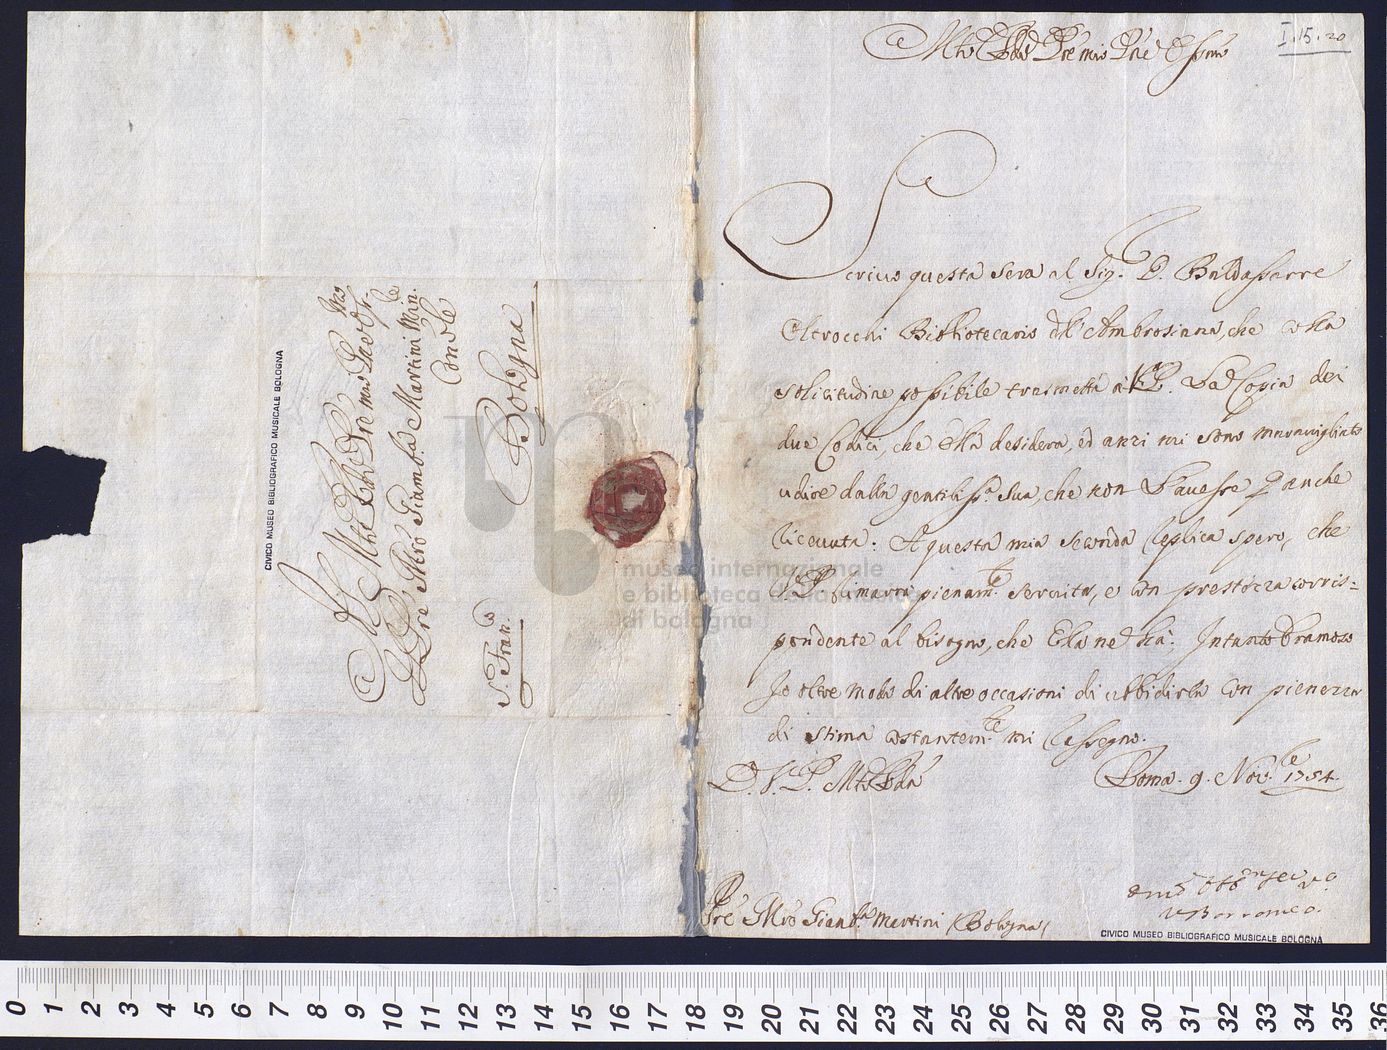 I.15.20
Mto Rdo Pre mio Pne Ossmo
Scrivo questa sera al Sig.r D. Baldassarre
Oltrocchi Bibliotecario dell'Ambrosiana, che colla
solicitudine possibile trasmetta a V.P. la Copia dei
due Codici, che Ella desidera, ed anzi mi sono maravigliato
udire dalla gentiliss.a Sua, che non l'avesse p anche
ricevuta: A questa mia seconda replica spero, che
V.P. rimarrà pienam.te servita, e con prestezza corris-
pondente al bisogno, che Ela ne hà: Intanto bramoso
Io oltre modo di altre occasioni di ubbidirla con pienezza
di stima costantem.te mi rassegno.
D. V. P. Mto Rda
Roma. 9. Nov.bre 1754.
Pre Mro Giamb.a Martini (Bologna)
Borromeo.
CIVICO MUSEO BIBLIOGRAFICO MUSICALE BOLOGNA
Al Mto Rdo Pre mio Pne Oss.mo
Il Pre Mro Giamb.a Martini Min.
Con.le
Bologna
S. Fran.co
CIVICO MUSEO BIBLIOGRAFICO MUSICALE BOLOGNA
museo internazionale
e biblioteca della musica
di bologna
0 1 2 3 4 5 6 7 8 9 10 11 12 13 14 15 16 17 18 19 20 21 22 23 24 25 26 27 28 29 30 31 32 33 34 35 36